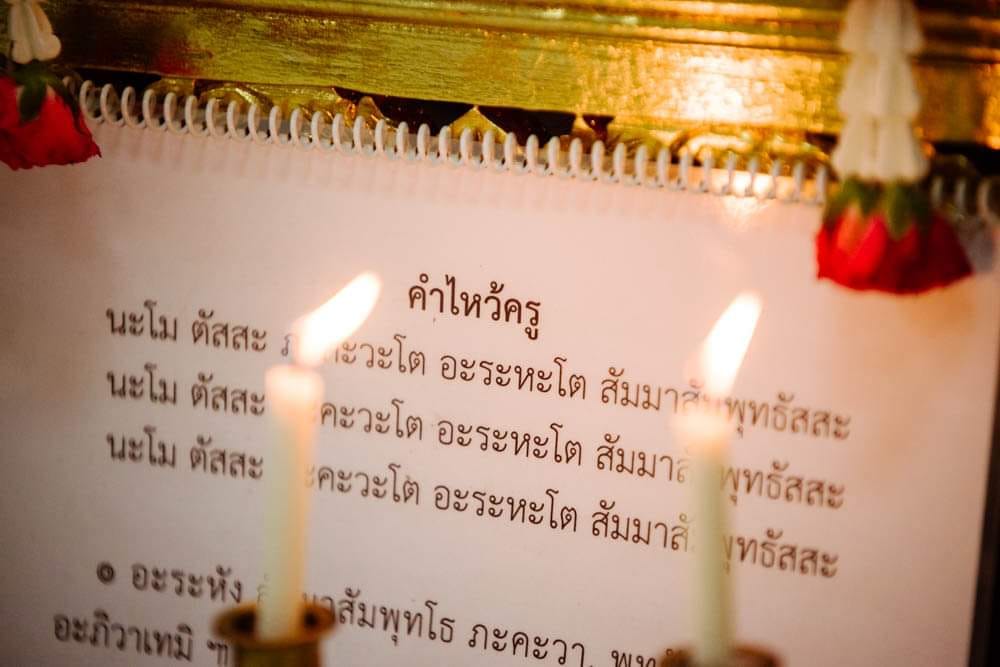 คำไหว้ครู
นะโม ตัสสะ คะวะโต อะระหะโต สัมมาสัมพุทธัสสะ
นะโม ตัสสะ คะวะโต อะระหะโต สัมมาสั พุทธัสสะ
นะโม ตัสสะ คะวะโต อะระหะโต สัมมาสั ทธัสสะ
๑ อะระหัง สัมพุทโธ ภะคะวา,
อะภิวาเทมิ ฯ